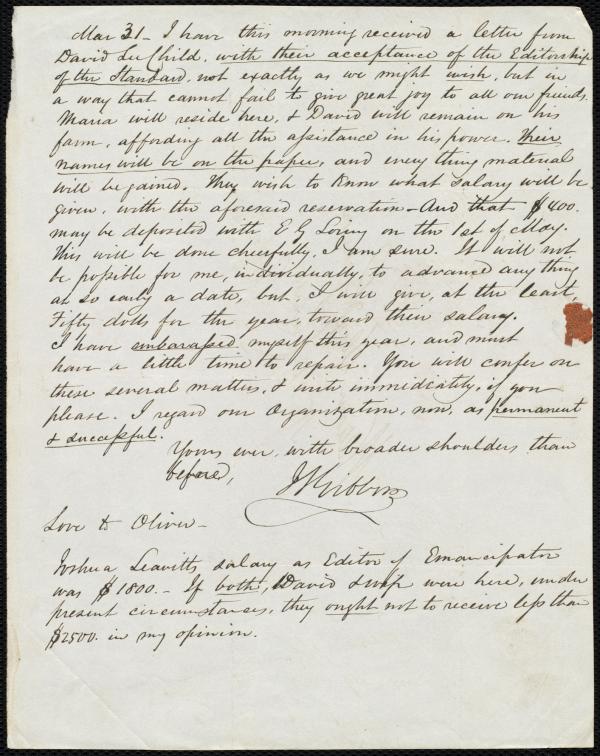 Mar 31 - I have this morning received a letter from
David Lee Child, with their acceptance of the Editorship
of the Standard, not exactly as we might wish, but in
a way that cannot fail to give great joy to all our friends.
Maria will reside here, & David will remain on his
farm, affording all the assistance in his power. Their
names will be on the paper, and every thing material
will be gained. They wish to know what salary will be
given, with the aforesaid reservation - And that $400.
may be deposited with E G Loring on the 1st of May.
This will be done cheerfully, I am sure. It will not
be possible for me, individually, to advance any thing
at so early a date, but, I will give, at the least,
Fifty dolls for the year, toward their salary.
I have embarassed myself this year, and must
have a little time to repair. You will confer on
these several matters, & write immediately, if you
please. I regard our Organization, now, as permanent
& successful.
Yours ever, with broader shoulders than
before,
J S Gibbons
Love to Oliver -
Joshua Leavitt's salary as Editor of Emancipator
was $1800. - If both, David & wife were here, under
present circumstances, they ought not to receive less than
$2500. in my opinion.